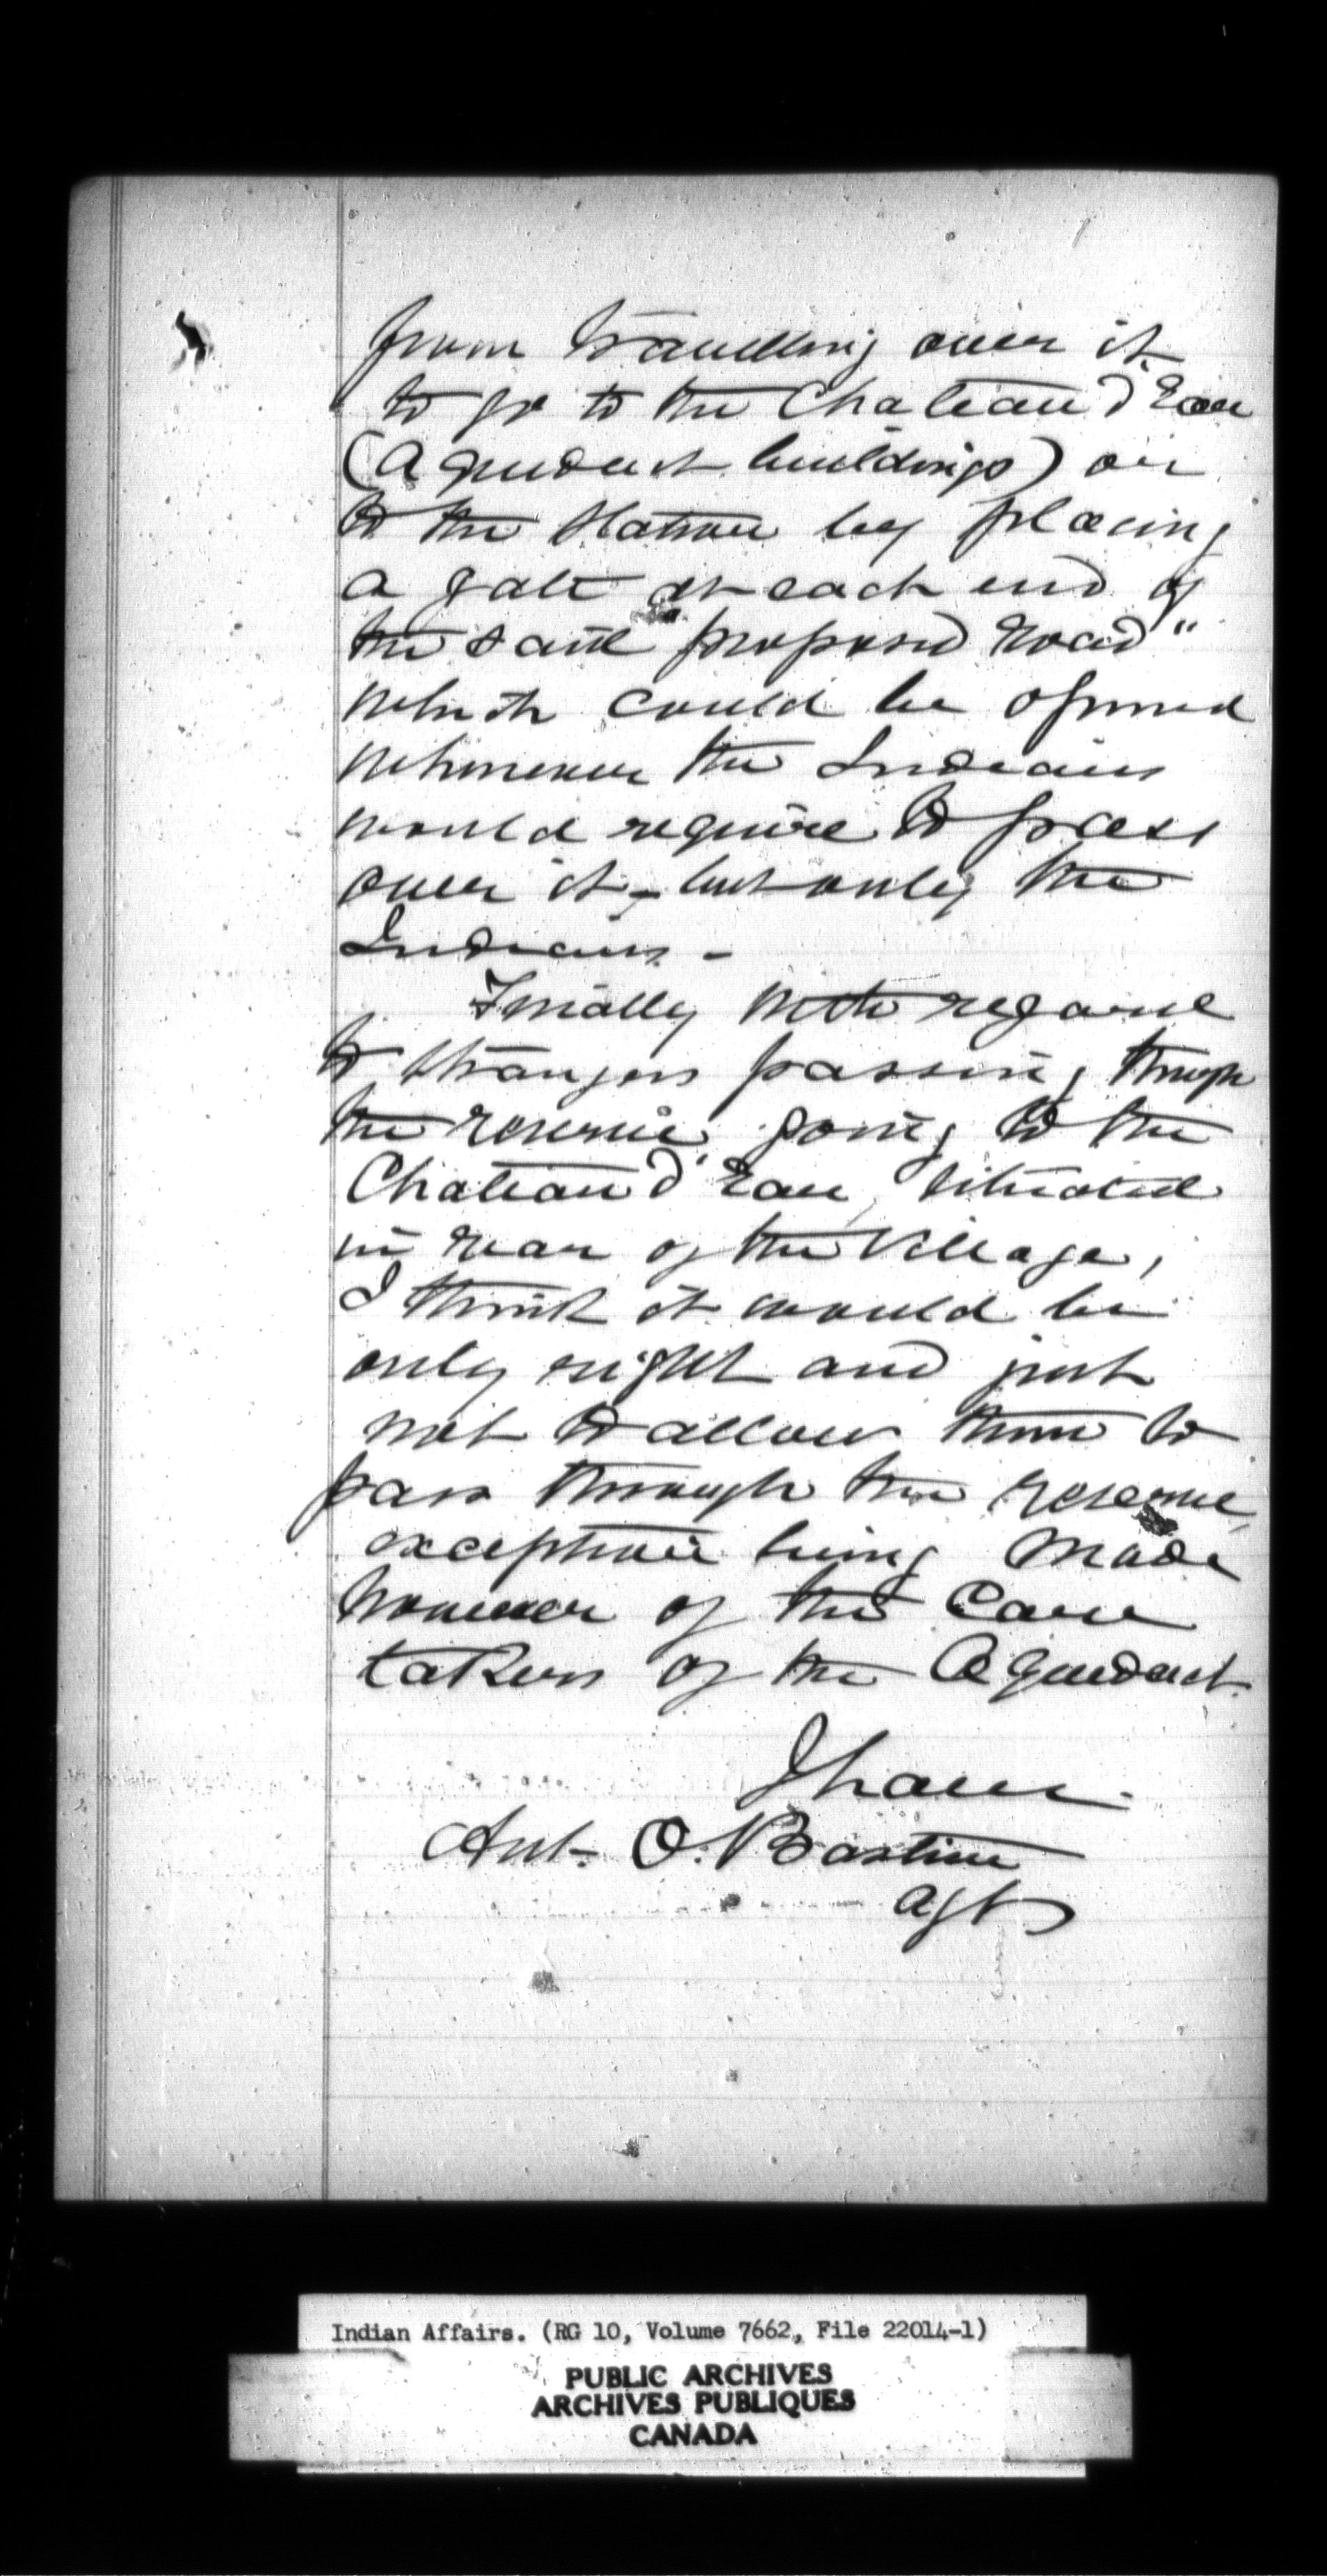 from travelling over it
to go to the Chateau d'Eau
(Aqueduct buildings) or
to the Station by placing
a gate at each end of
the said proposed road"
which could be opened
whenever the Indians
would require to pass
over it, but only the
Indians. -
Finally with regard
to strangers passing through
the reserve going to the
Chateau d'Eau, situated
in rear of the Village,
I think it would be
only right and just
not to allow them to
pass through the reserve,
exception being made
however of the Care
takers of the Aqueduct.
I have
Ant. O. Bastien
Agt
Indian Affairs. (RG 10, Volume 7662, File 22014-1)
PUBLIC ARCHIVES
ARCHIVES PUBLIQUES
CANADA